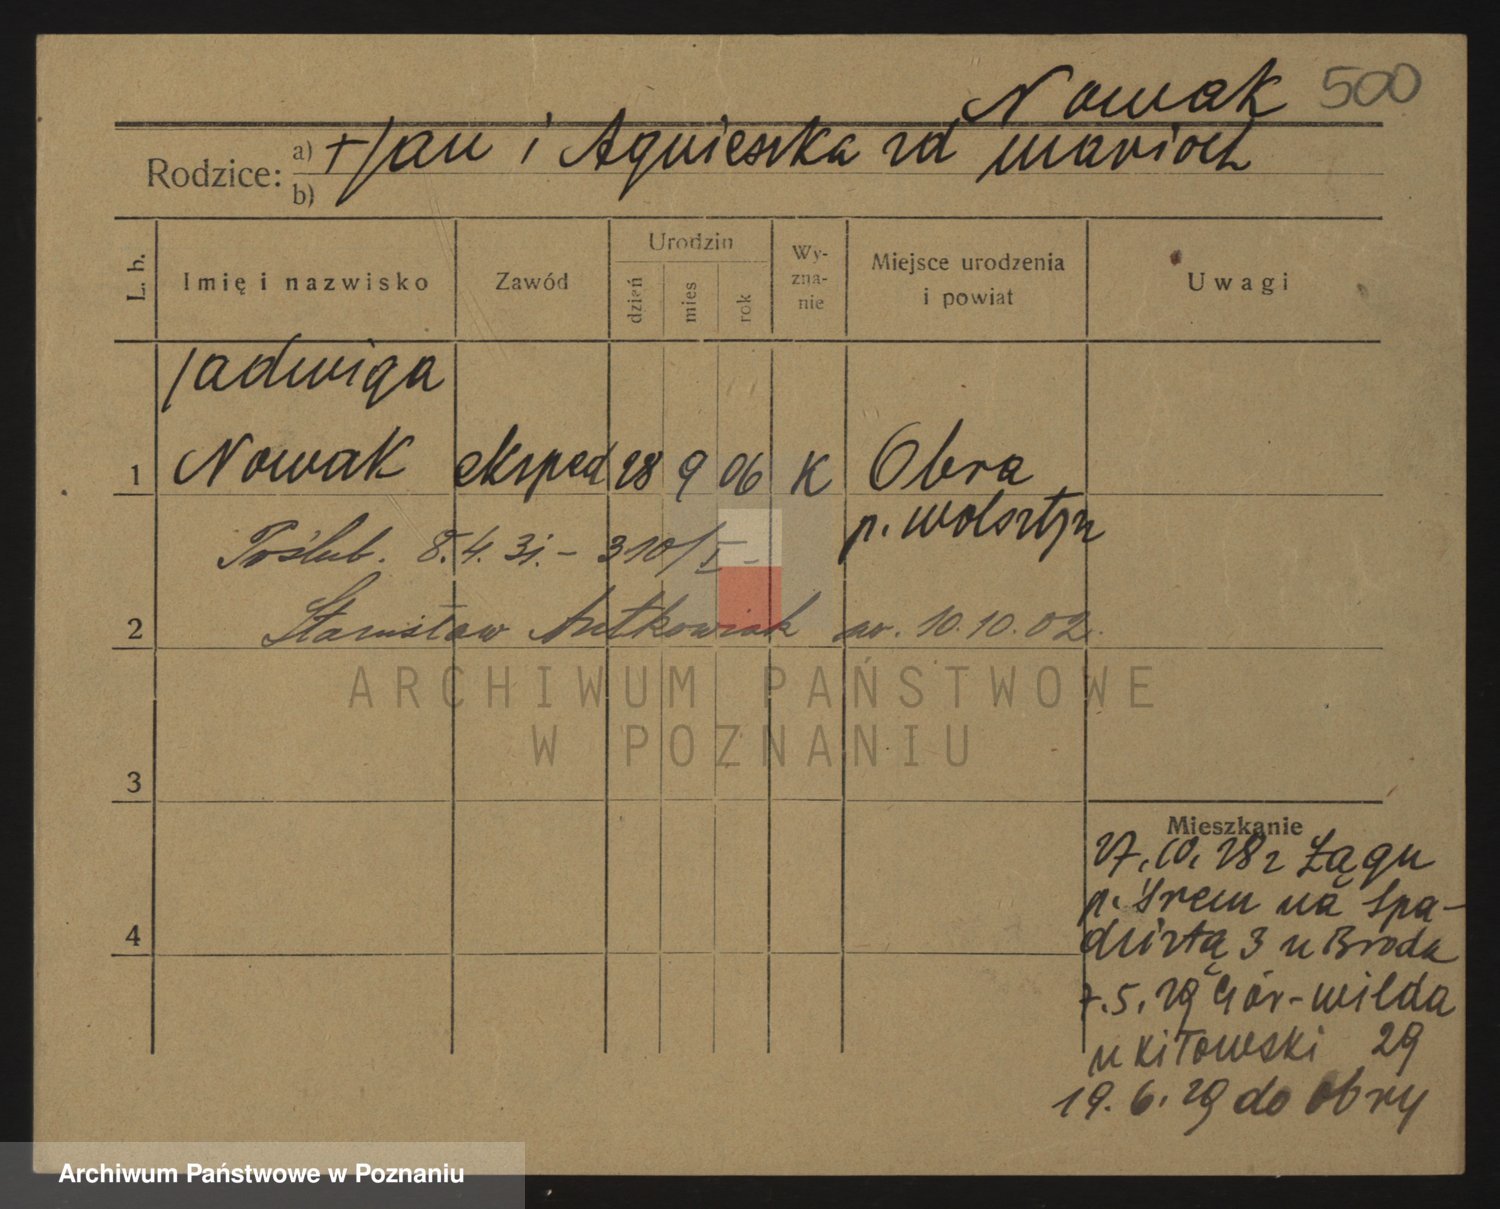 Nowak 500
Rodzice: a) +Jan i Agnieszka zd
b) Marioch
L. b. Imię i nazwisko Zawód Urodzin dzień mies rok Wyznanie Miejsce urodzenia i powiat Uwagi
Jadwiga
1 Nowak eksped 28 9 06 K Obra
p. Wolsztyn
Poślub. 8.4.31. - 310/I -
2 Stanisław Antkowiak ur. 10.10.02.
3
Mieszkanie
27.10.28 z Łągu
p. Śrem na Spa-
4 dzistą 3 u Broda
7.5.29 Gór-Wilda
u Kitowski 29
19.6.29 do Obry
ARCHIWUM PAŃSTWOWE
W POZNANIU
Archiwum Państwowe w Poznaniu